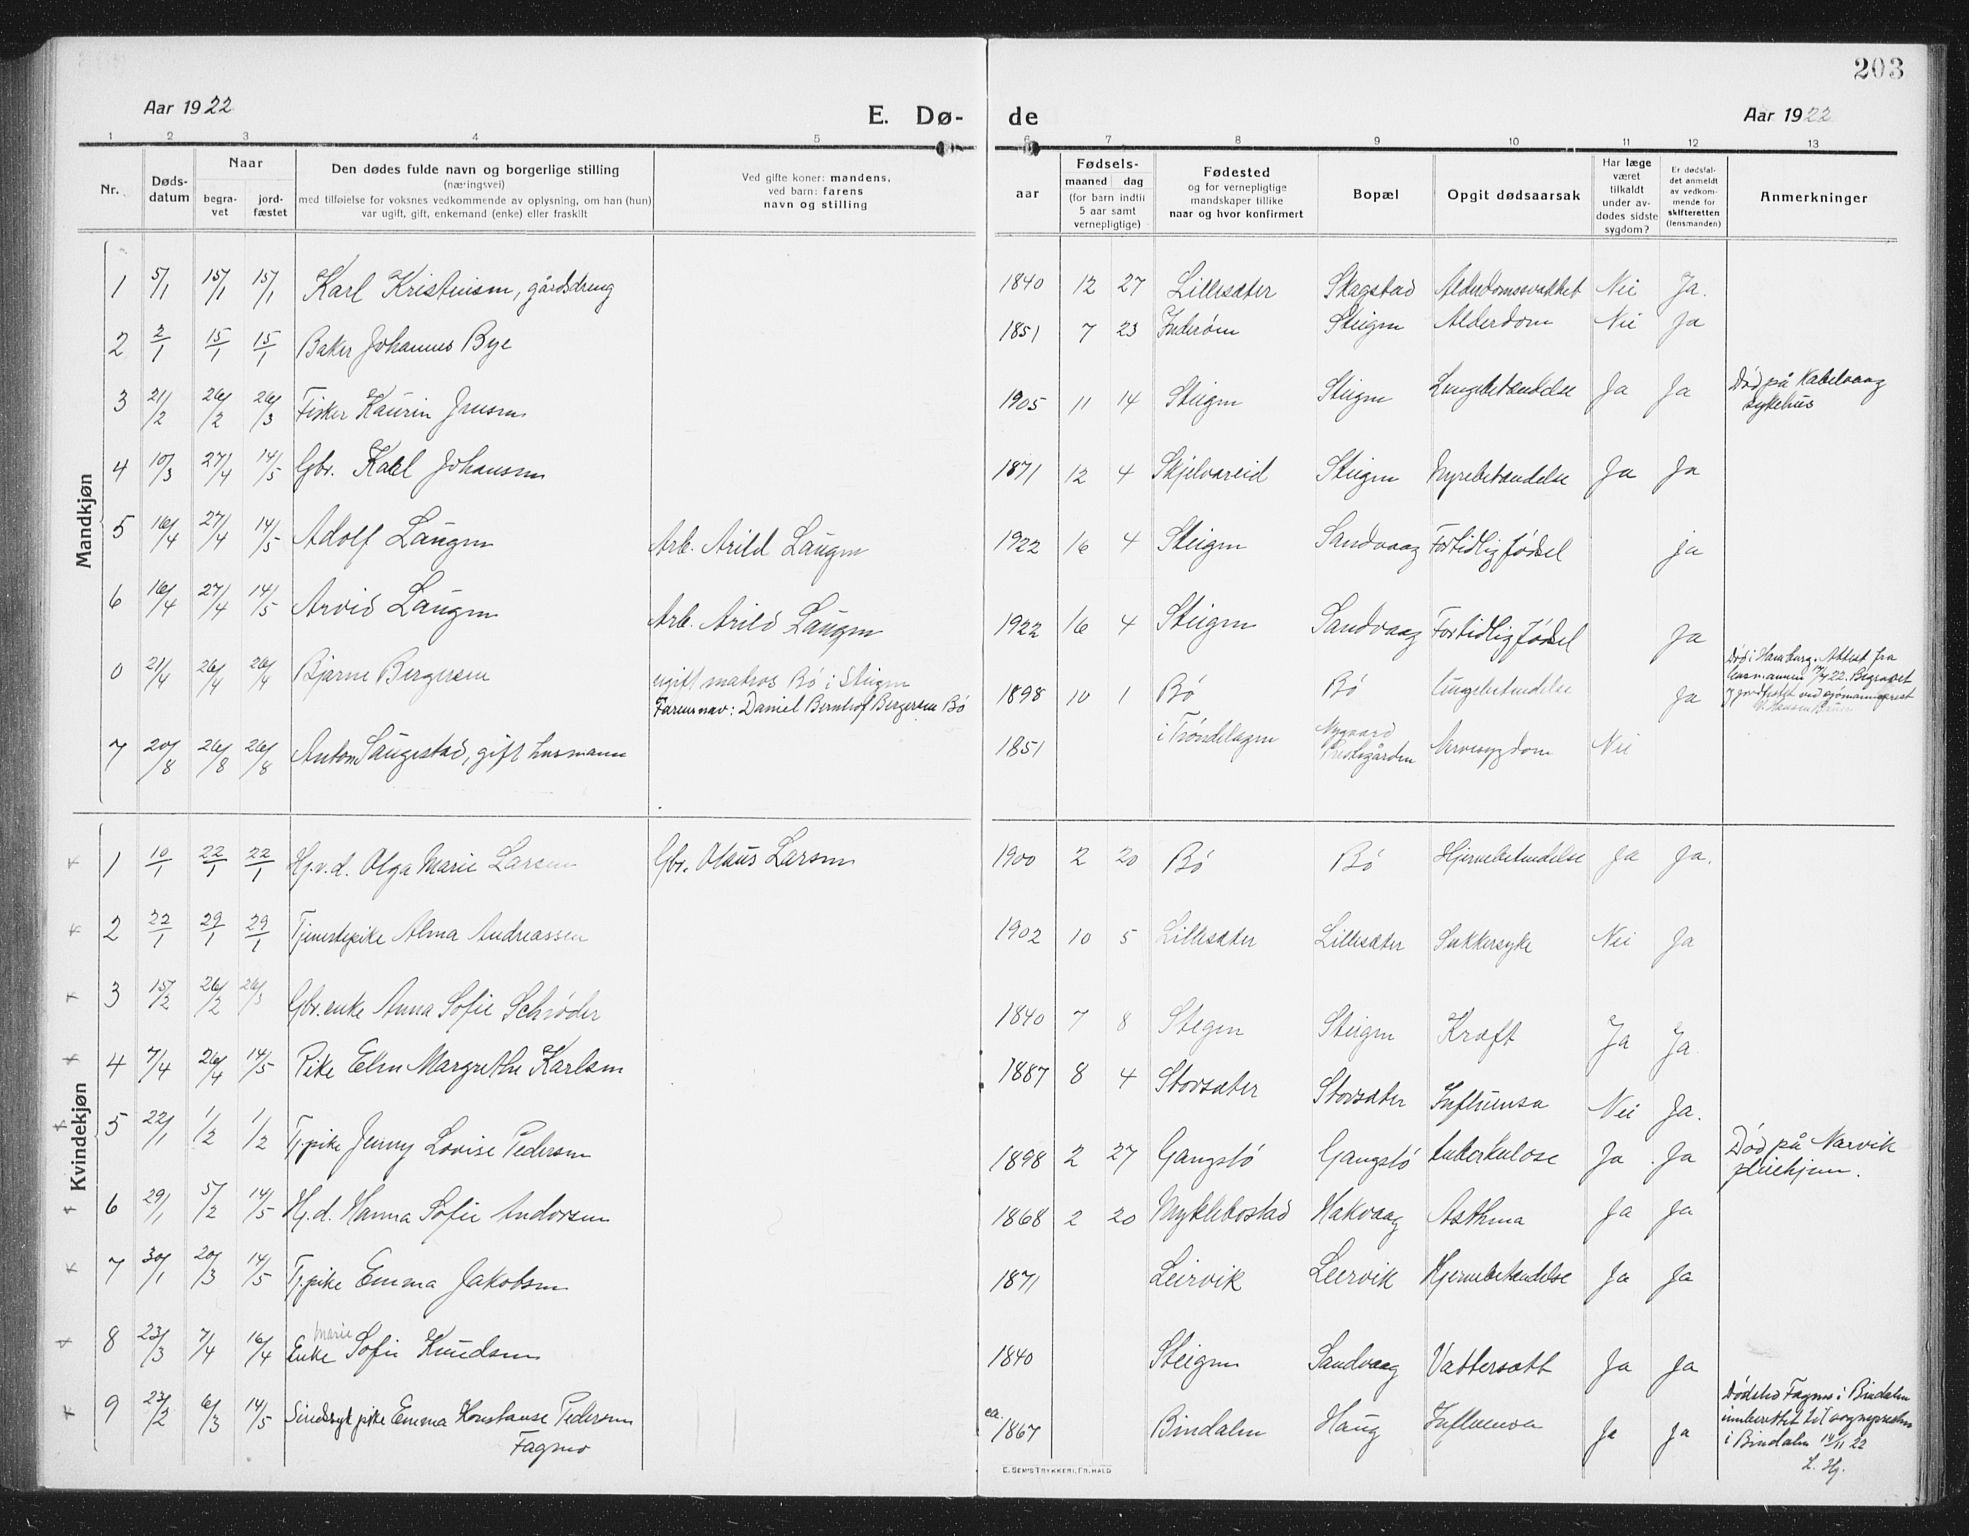 203
Aar 1922
E. Dø-
de
Aar 1922
1 2 3 4 5 6 7 8 9 10 11 12 13
Nr.
Døds-
datum
Naar
begra-
vet
jord-
fæstet
Den dødes fulde navn og borgerlige stilling
(næringsvei)
med tilføielse for voksnes vedkommende av oplysning, om han (hun)
var ugift, gift, enkemand (enke) eller fraskilt
Ved gifte koner: mandens,
ved barn: farens
navn og stilling
aar
Fødsels-
maaned dag
(for barn indtil
5 aar samt
vernepligtige)
Fødested
og for vernepligtige
mandskaper tillike
naar og hvor konfirmert
Bopæl
Opgit dødsaarsak
Har læge
været
tilkaldt
under av-
dødes sidste
sygdom?
Er dødsfal-
det anmeldt
av vedkom-
mende for
skifteretten
(lensmanden)
Anmerkninger
Mandkjøn
1 5/1 15/1 15/1 Karl Kristensen, gårdsdreng 1840 12 27 Lillesæter Skagstad Alderdomssvakhet Nei Ja.
2 2/1 15/1 15/1 Baker Johannes Bye 1851 7 23 Inderøen Steigen Alderdom Nei Ja
3 21/2 26/2 26/3 Fisker Kaurin Jensen 1905 11 14 Steigen Steigen Lungebetændelse Ja Ja Død på Kabelvaag
sykehus
4 10/3 27/4 14/5 Gbr. Karl Johansen 1871 12 4 Skjelvareid Steigen Nyrebetændelse Ja Ja
5 16/4 27/4 14/5 Adolf Laugen Arb. Arild Laugen 1922 16 4 Steigen Sandvaag Fortidlig fødsel ja
6 16/4 27/4 14/5 Arvid Laugen Arb. Arild Laugen 1922 16 4 Steigen Sandvaag Fortidlig fødsel Ja
0 21/4 26/4 26/4 Bjarne Bergersen ugift matros Bø i Steigen 1898 10 1 Bø Bø Lungebetendelse Ja Død i Hamburg. Attest fra
Farens nav: Daniel Bernhof Bergersen Bø
lensmannen 17/7 22. Begravet
og jordfestet ved sjømannsprest
7 20/8 26/8 26/8 Anton Saugestad, gift husmann 1851 i Trøndelagen Nygaard
Prestegården Nervesygdom Nei
Kvindekjøn
1 10/1 22/1 22/1 Hj.v.d. Olga Marie Larsen Gbr. Olaus Larsen 1900 2 20 Bø Bø Hjernebetendelse Ja Ja.
2 22/1 29/1 29/1 Tjenestepike Alma Andreassen 1902 10 5 Lillesæter Lillesæter Sukkersyke Nei Ja
3 15/2 26/2 26/3 Gbr.enke Anna Sofie Schrøder 1840 7 8 Stegen Steigen Kræft Ja Ja
4 7/4 26/4 14/5 Pike Elen Margrethe Karlsen 1887 8 4 Storsæter Storsæter Influensa Nei Ja.
5 22/1 1/2 1/2 Tj.pike Jenny Lovise Pedersen 1898 2 27 Gangstø Gangstø tuberkulose Ja Ja Død på Narvik
pleiehjem.
6 29/1 5/2 14/5 Hj.d. Hanna Sofie Andersen 1868 2 20 Myklebostad Hakvaag Asthma Ja Ja
7 30/1 20/3 14/5 Tj.pike Emma Jakobsen 1871 Leirvik Leervik Hjernebetændelse Ja Ja
8 23/3 7/4 16/4 Enke Marie Sofie Knudsen 1840 Steigen Sandvaag Vattersott Ja Ja
9 23/2 6/3 14/5 Sindssyk pike Emma Konstanse Pedersen
Fagmo ca. 1867 Bindalen Haug Influensa Ja Ja Dødsted Fagmo i Bindalen
innberettet til sognepresten
i Bindalen 14/11 22
L. Hg.
E. SEM'S TRYKKERI, FR.HALD